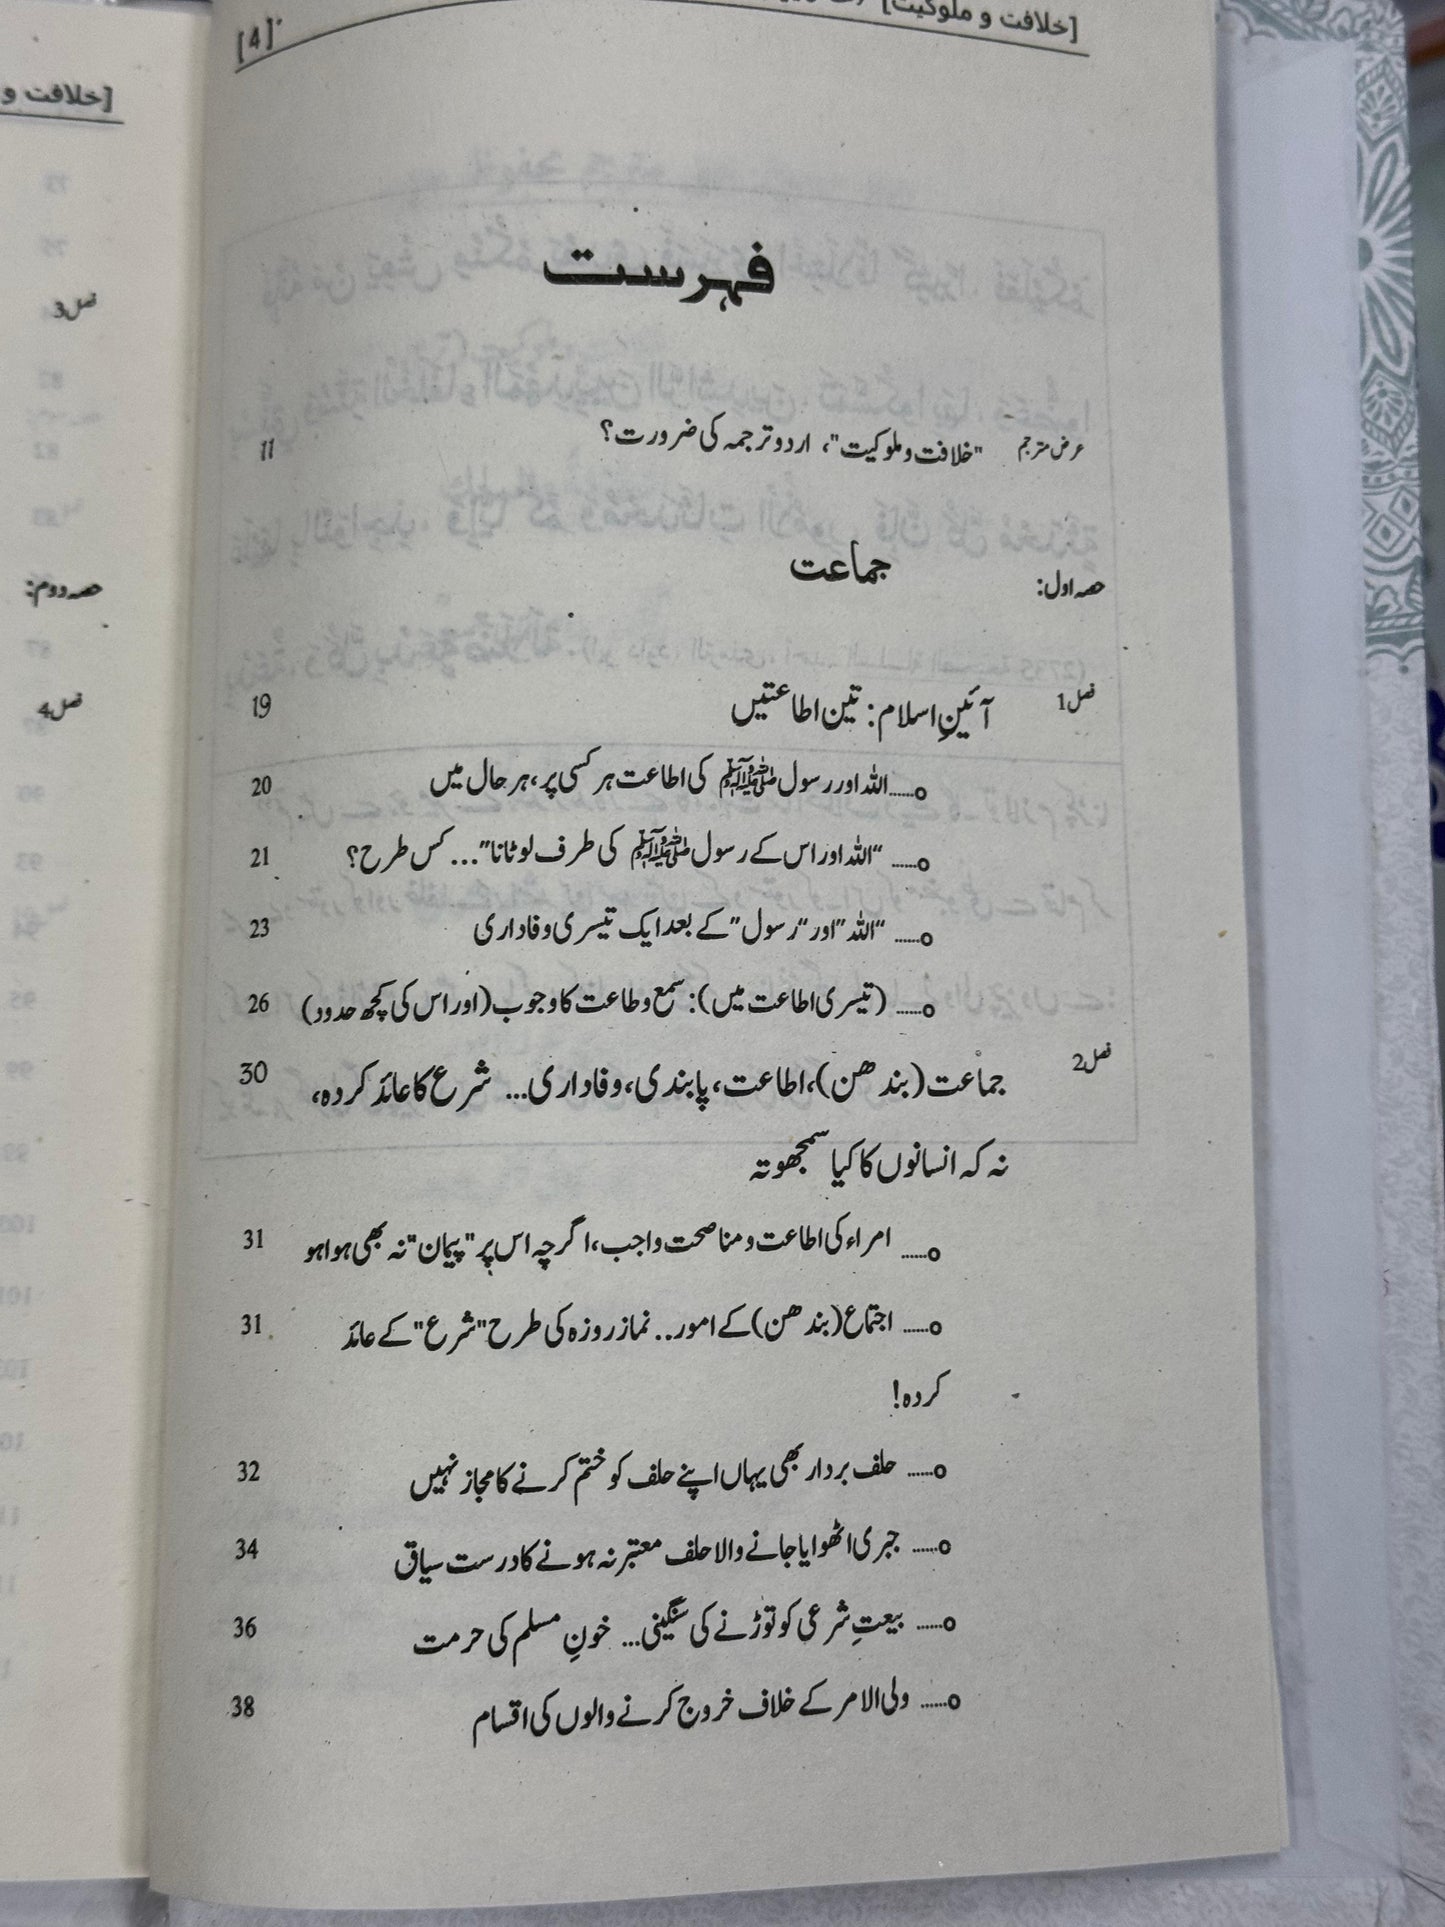 [خلافت و ملوکیت]
[4]
فہرست
عرض مترجم "خلافت و ملوکیت"، اردو ترجمہ کی ضرورت؟ 11
حصہ اول: جماعت
فصل 1 آئینِ اسلام: تین اطاعتیں 19
o..... اللہ اور رسول ﷺ کی اطاعت ہر کسی پر، ہر حال میں 20
o..... "اللہ اور اس کے رسول ﷺ کی طرف لوٹانا"... کس طرح؟ 21
o..... "اللہ" اور "رسول" کے بعد ایک تیسری وفاداری 23
o..... (تیسری اطاعت میں): سمع و طاعت کا وجوب (اور اس کی کچھ حدود) 26
فصل 2 جماعت (بندھن)، اطاعت، پابندی، وفاداری... شرع کا عائد کردہ، 30
نہ کہ انسانوں کا کیا سمجھوتہ
o..... امراء کی اطاعت و مناصحت واجب، اگرچہ اس پر "پیمان" نہ بھی ہوا ہو 31
o..... اجتماع (بندھن) کے امور.. نماز روزہ کی طرح "شرع" کے عائد 31
کردہ!
o..... حلف بردار بھی یہاں اپنے حلف کو ختم کرنے کا مجاز نہیں 32
o..... جبری اٹھوایا جانے والا حلف معتبر نہ ہونے کا درست سیاق 34
o..... بیعتِ شرعی کو توڑنے کی سنگینی... خونِ مسلم کی حرمت 36
o..... ولی الامر کے خلاف خروج کرنے والوں کی اقسام 38
[خلافت و
فصل 3
حصہ دوم:
فصل 4